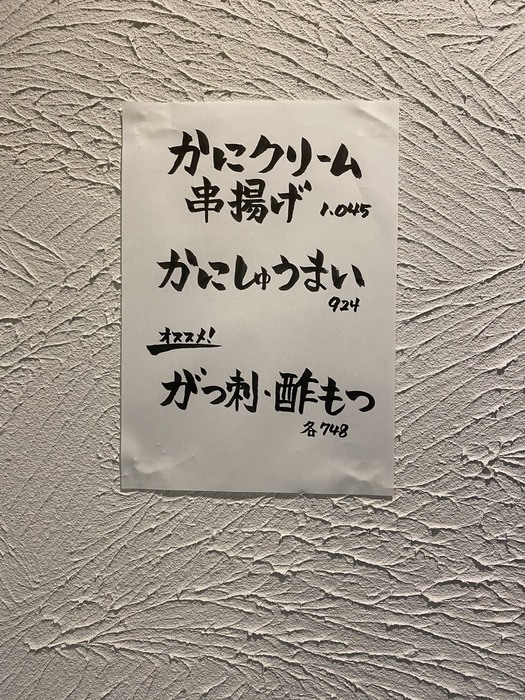 かにクリーム
串揚げ 1.045
かにしゅうまい
924
オススメ!
がつ刺・酢もつ
各748